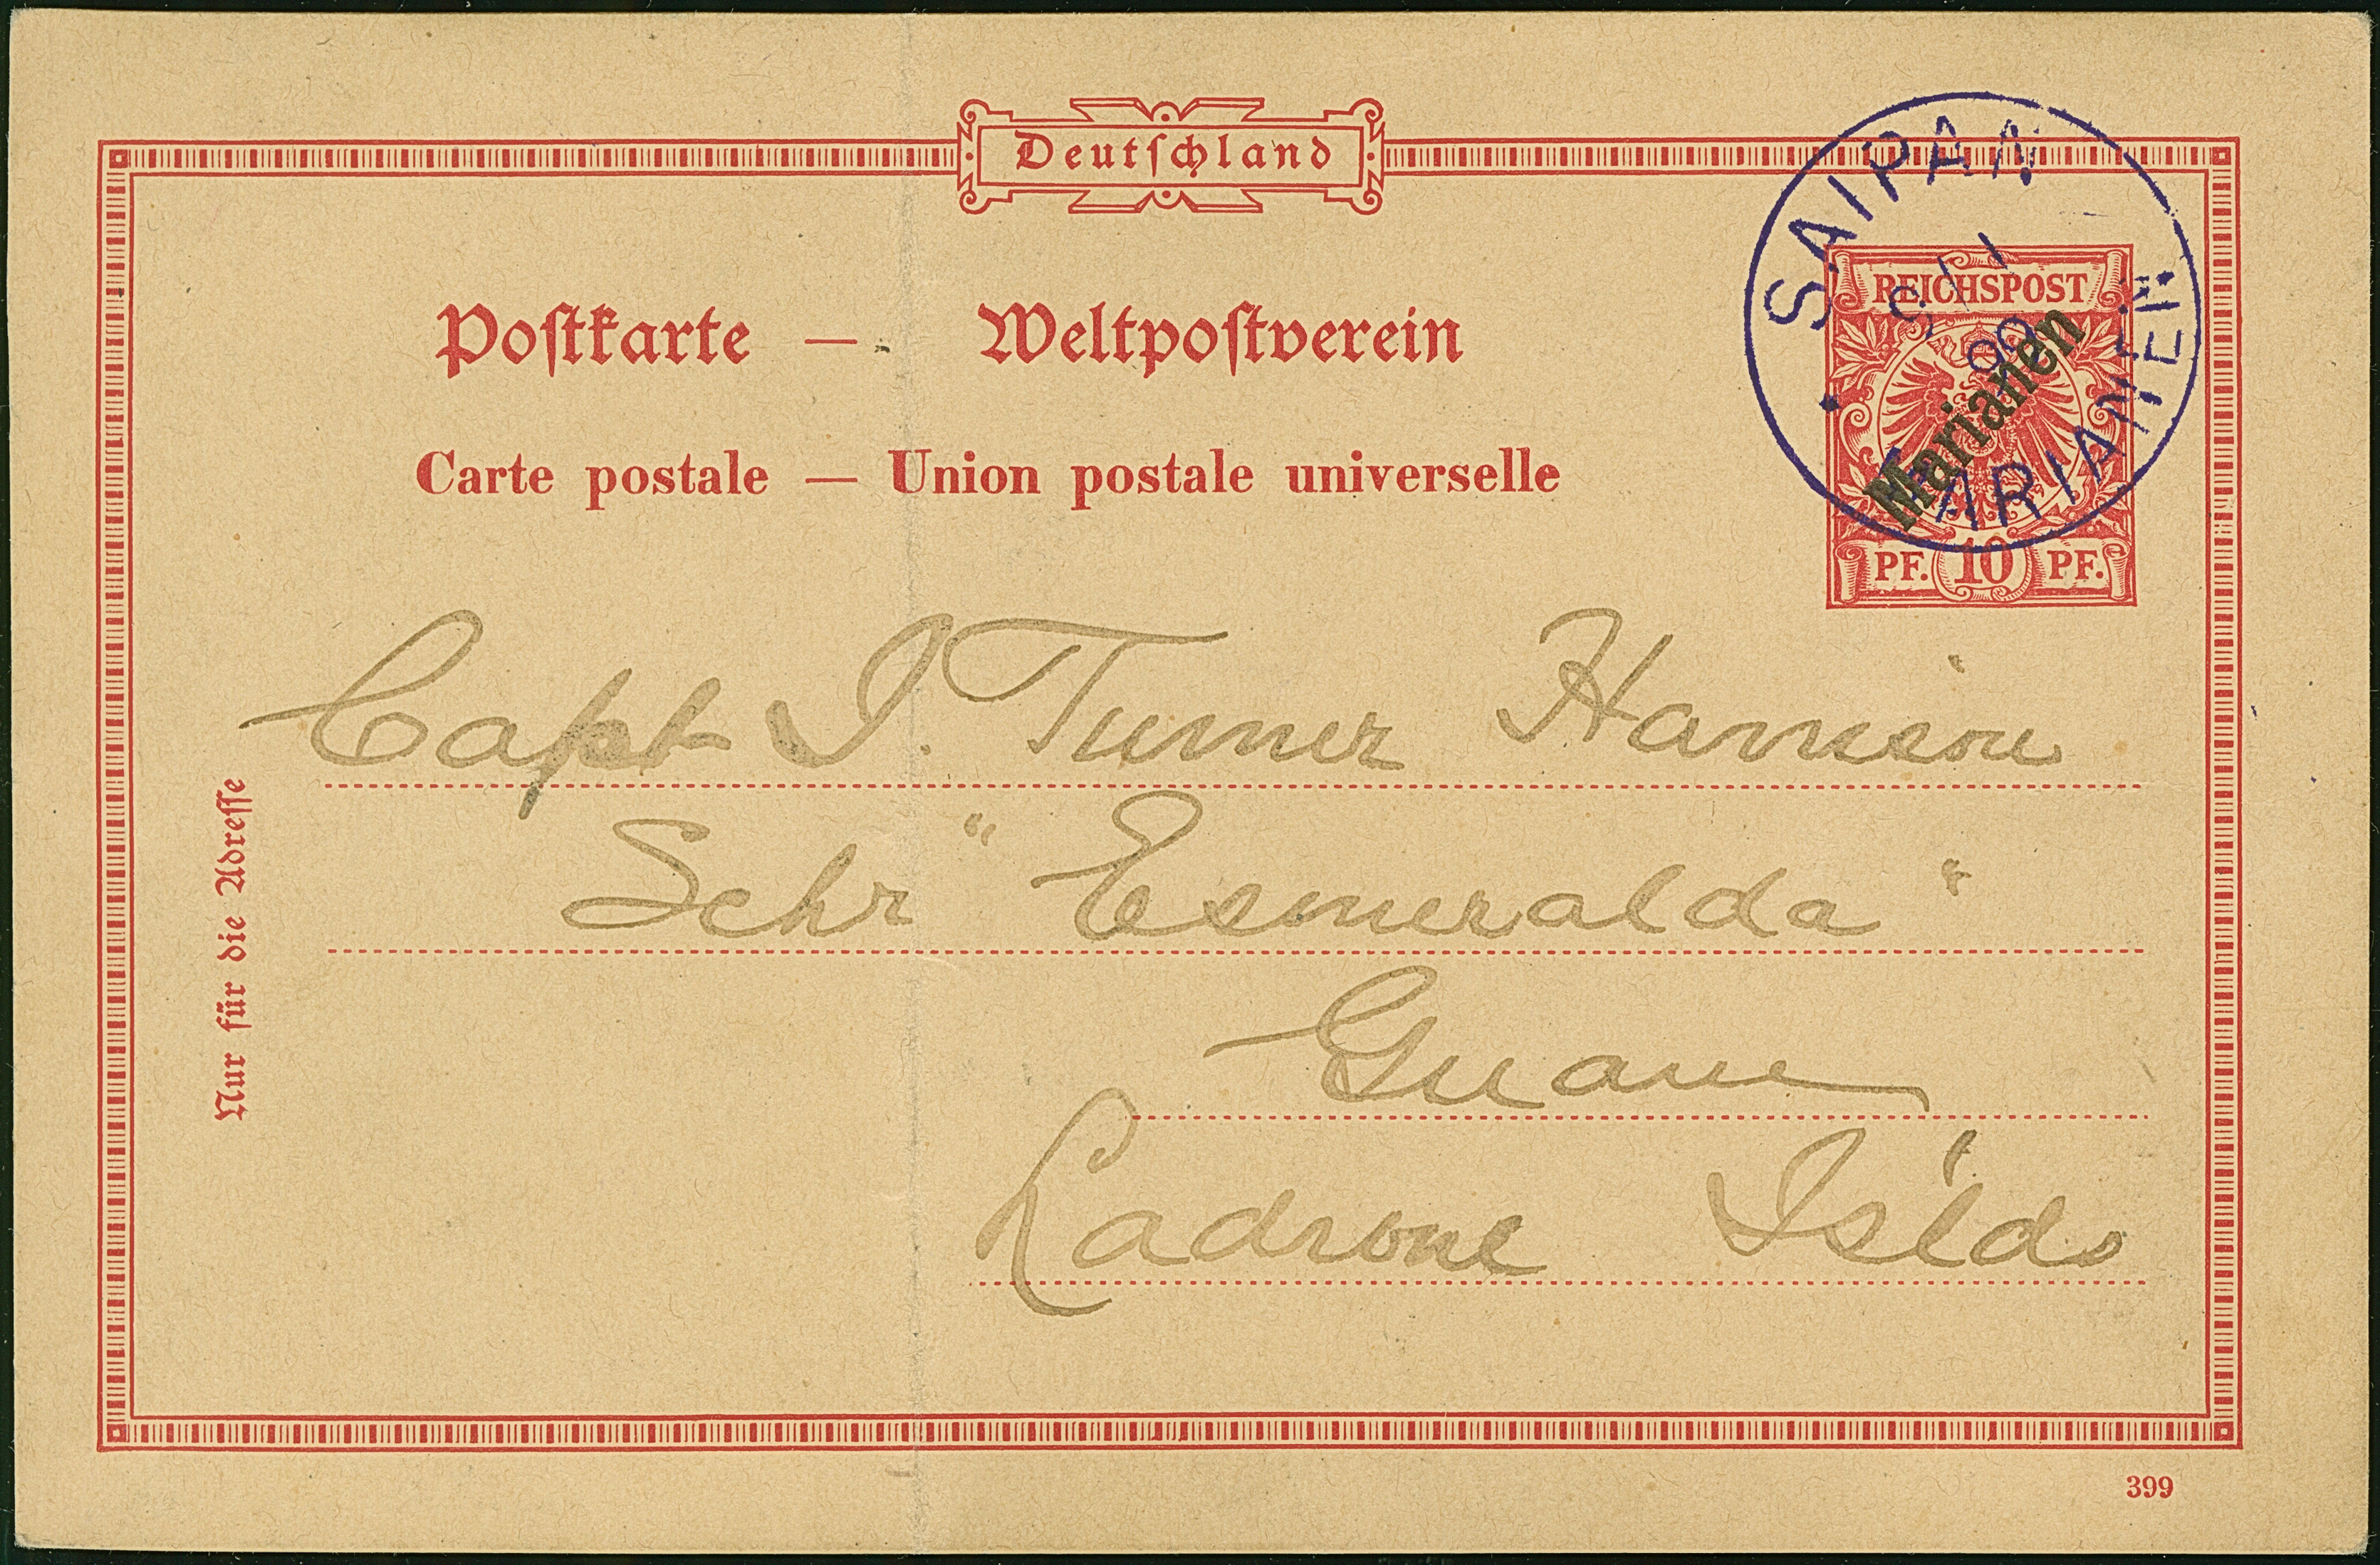 Deutſchland
SAIPAN
9/11
99
MARIANEN
REICHSPOST
Marianen
PF. 10 PF.
Poſtkarte — Weltpoſtverein
Carte postale — Union postale universelle
Capt J. Turner Harrison
Schr "Esmeralda"
Guam
Ladrone Isl'ds
Nur für die Adreſſe
399